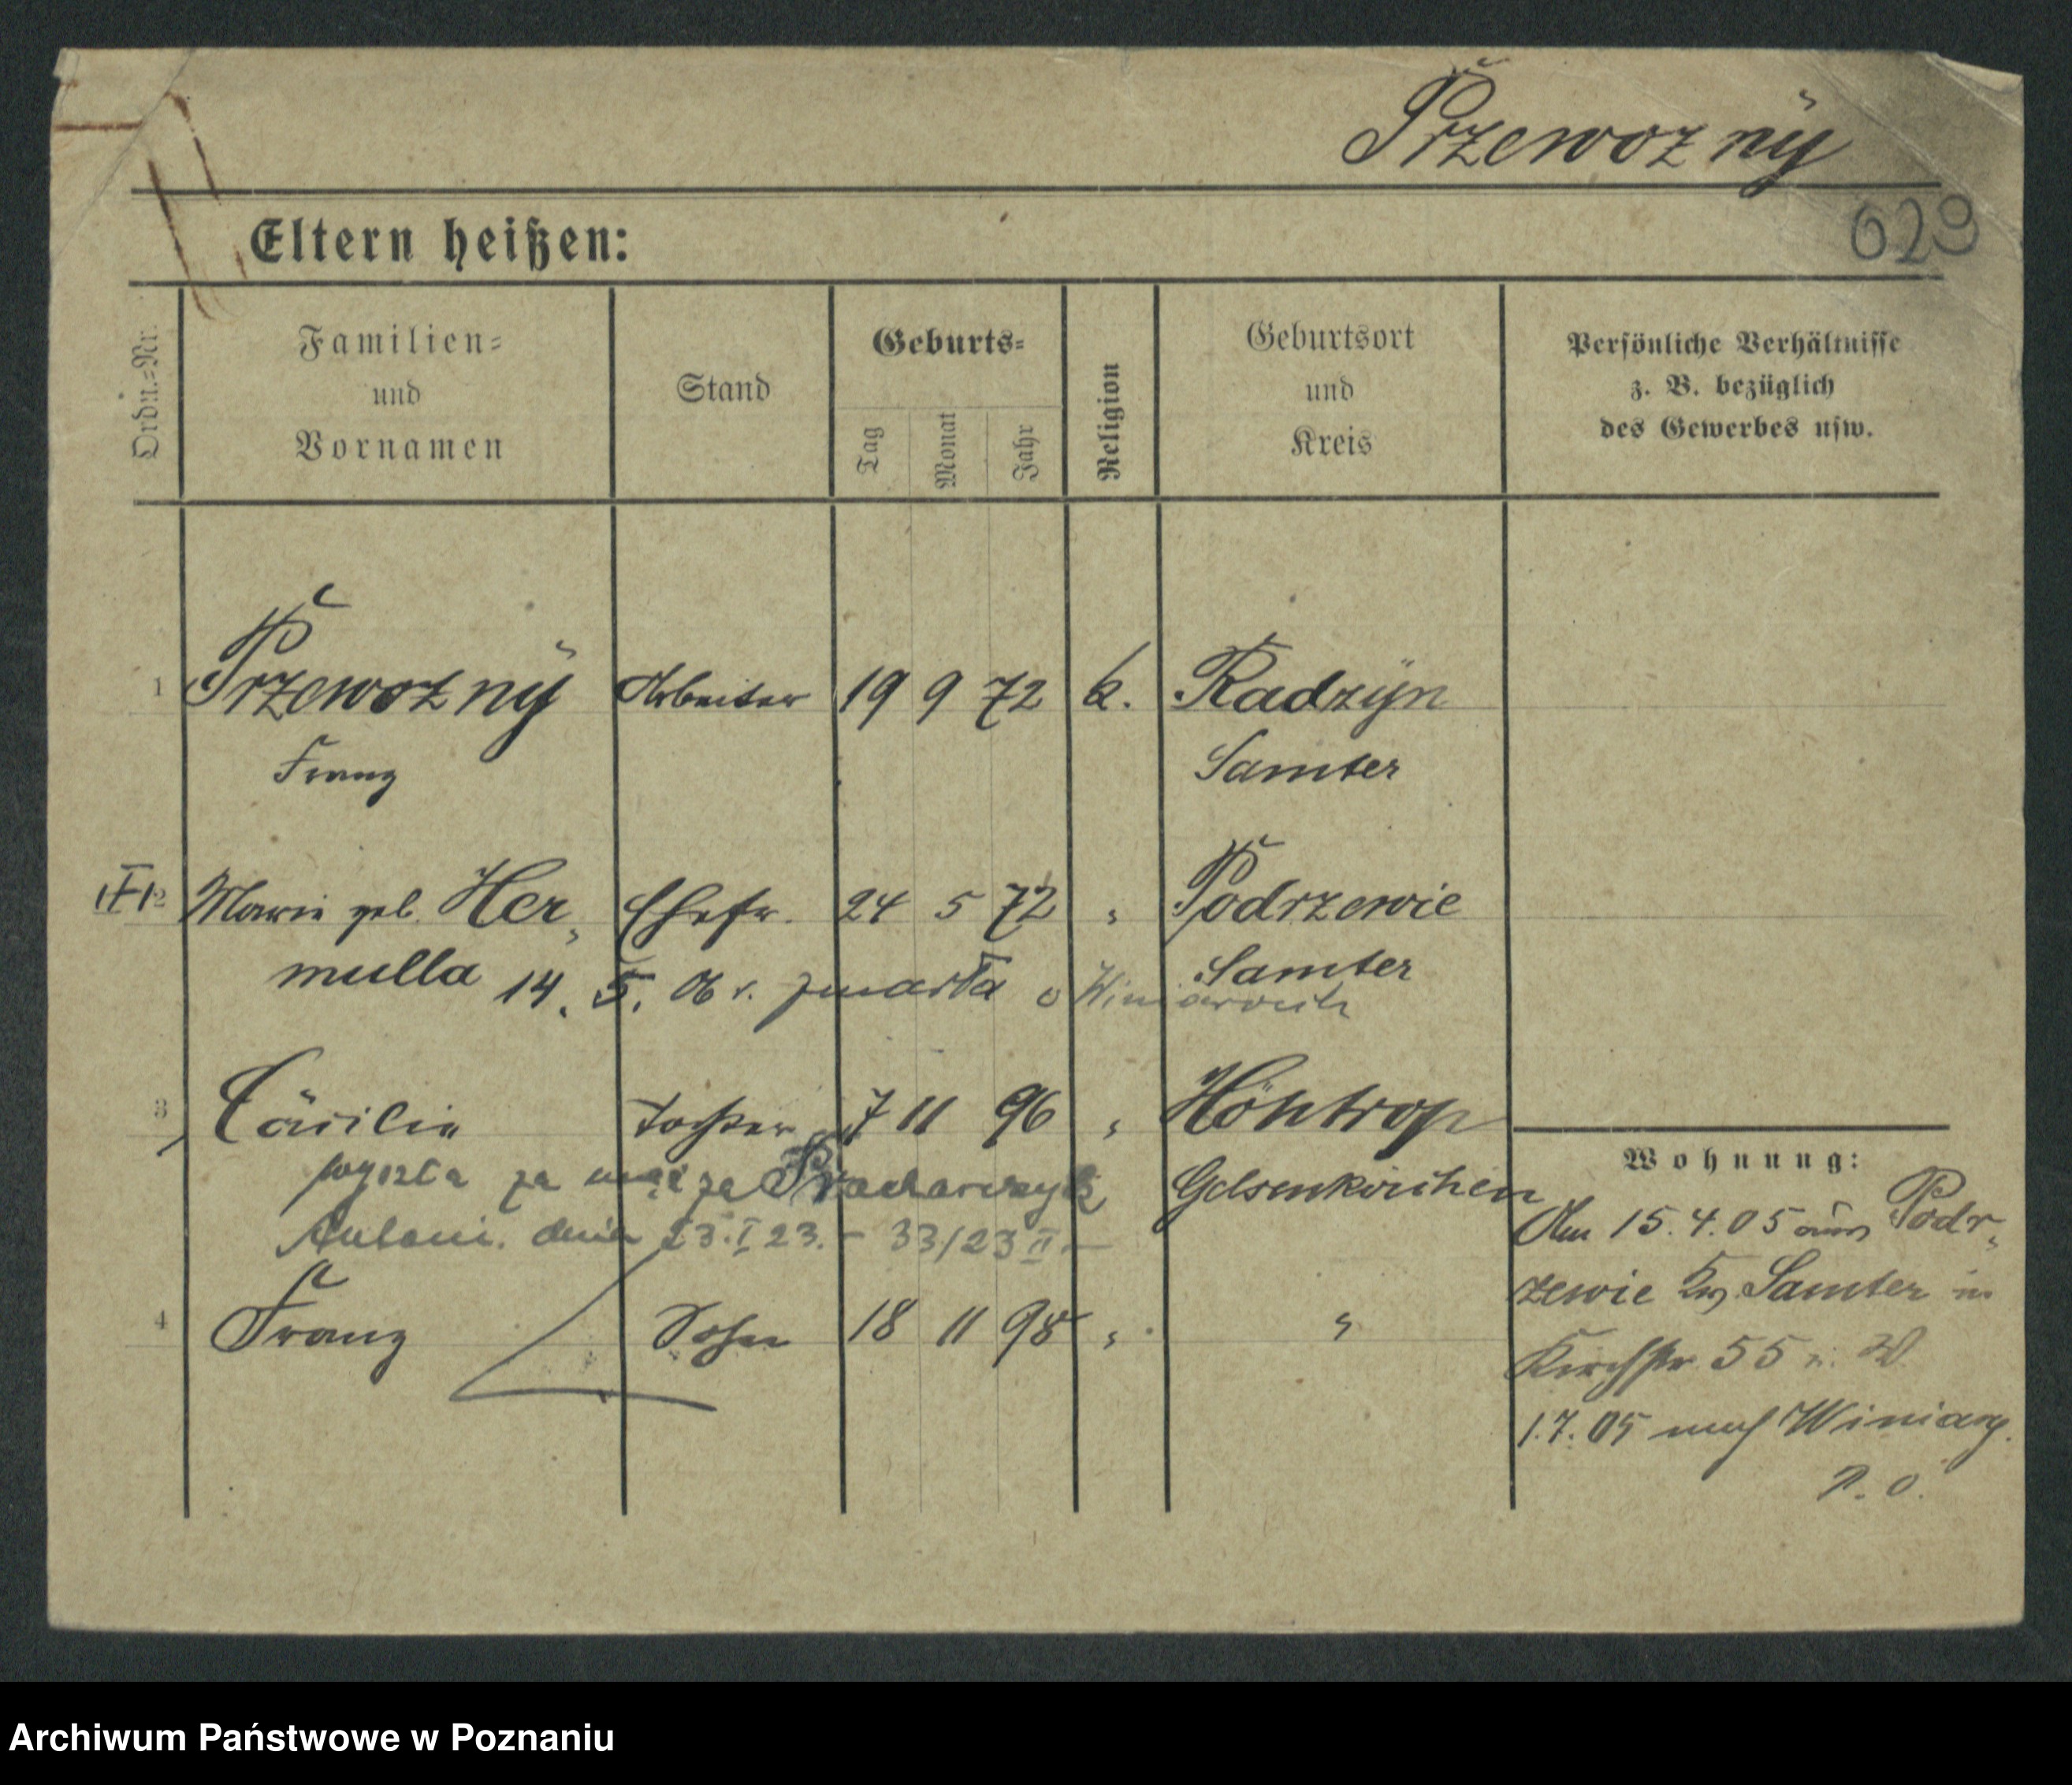 Przewozny
629
Eltern heißen:
Ordn.=Nr.
Familien=
und
Vornamen
Stand
Geburts=
Tag
Monat
Jahr
Religion
Geburtsort
und
Kreis
Persönliche Verhältnisse
z. B. bezüglich
des Gewerbes usw.
1 Przewozny Arbeiter 19 9 72 k. Radzyn
Franz Samter
2 Marie geb. Her„ Ehefr. 24 5 72 „ Podrzewie
mulla Samter
14. 5. 06 r. zmarła o Winiarach
3 Cäcilie Tochter 7 11 96 „ Höhtrop
wyszła za mąż za Gelsenkirchen
Antoni. dnia 23.I 23. – 33/23 II –
4 Franz Sohn 18 11 98 „ „
Wohnung:
Am 15.4.05 aus Podr„
zewie Kr. Samter in
Kirchstr. 55 n. W.
1.7.05 nach Winiary.
P. O.
Archiwum Państwowe w Poznaniu